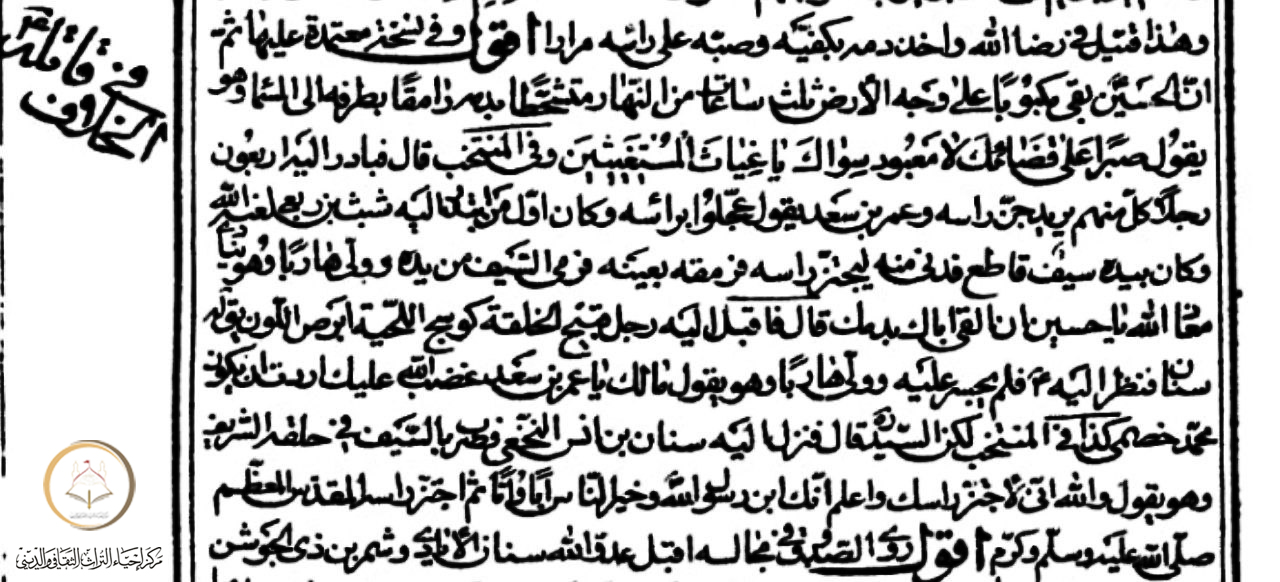 وهذا قتيل في رضا الله واخذ دمه بكفيه وصبه على رأسه مرارا أقول وفي نسخة معتمدة عليها ثم
انّ الحسين بقي مكبوبا على وجه الأرض ثلث ساعات من النهار متشحّطا بدمه رامقا بطرفه الى السماء وهو
يقول صبرا على قضائك لا معبود سواك يا غياث المستغيثين وفي المنتخب قال فبادر اليه اربعون
رجلا كلّ منهم يريد جزّ راسه وعمر بن سعد يقول عجّلوا برأسه وكان اوّل من ابتدا اليه شبث بن ربعي لعنه الله
وكان بيده سيف قاطع فدنى منه ليجتزّ راسه فرمقه بعينه فرمى السّيف من يده وولّى هاربا وهو ينادي
معاذ الله يا حسين ان القى اباك بدمك قال فاقبل اليه رجل قبيح الخلقة كوسج اللحية ابرص اللون يقال له
سنان فنظر اليه ع فلم يجسر عليه وولّى هاربا وهو يقول مالك يا عمر بن سعد غضب الله عليك اردت ان يكون
محمّد خصمي كذا في المنتخب لكن السيّد ره قال فنزل اليه سنان بن انس النخعي فضرب بالسّيف في حلقه الشريف
وهو يقول والله انّي لاجتزّ راسك واعلم أنّك ابن رسول الله وخير النّاس أبا وأمّا ثم اجتز راسه المقدس المعظّم
صلّى الله عليه وسلّم وكرّم أقول روى الصدوق في مجالسه اقبل عدو الله سنان الأيادي وشمر بن ذي الجوشن
في قاتله عم
مركز إحياء التراث الثقافي والديني